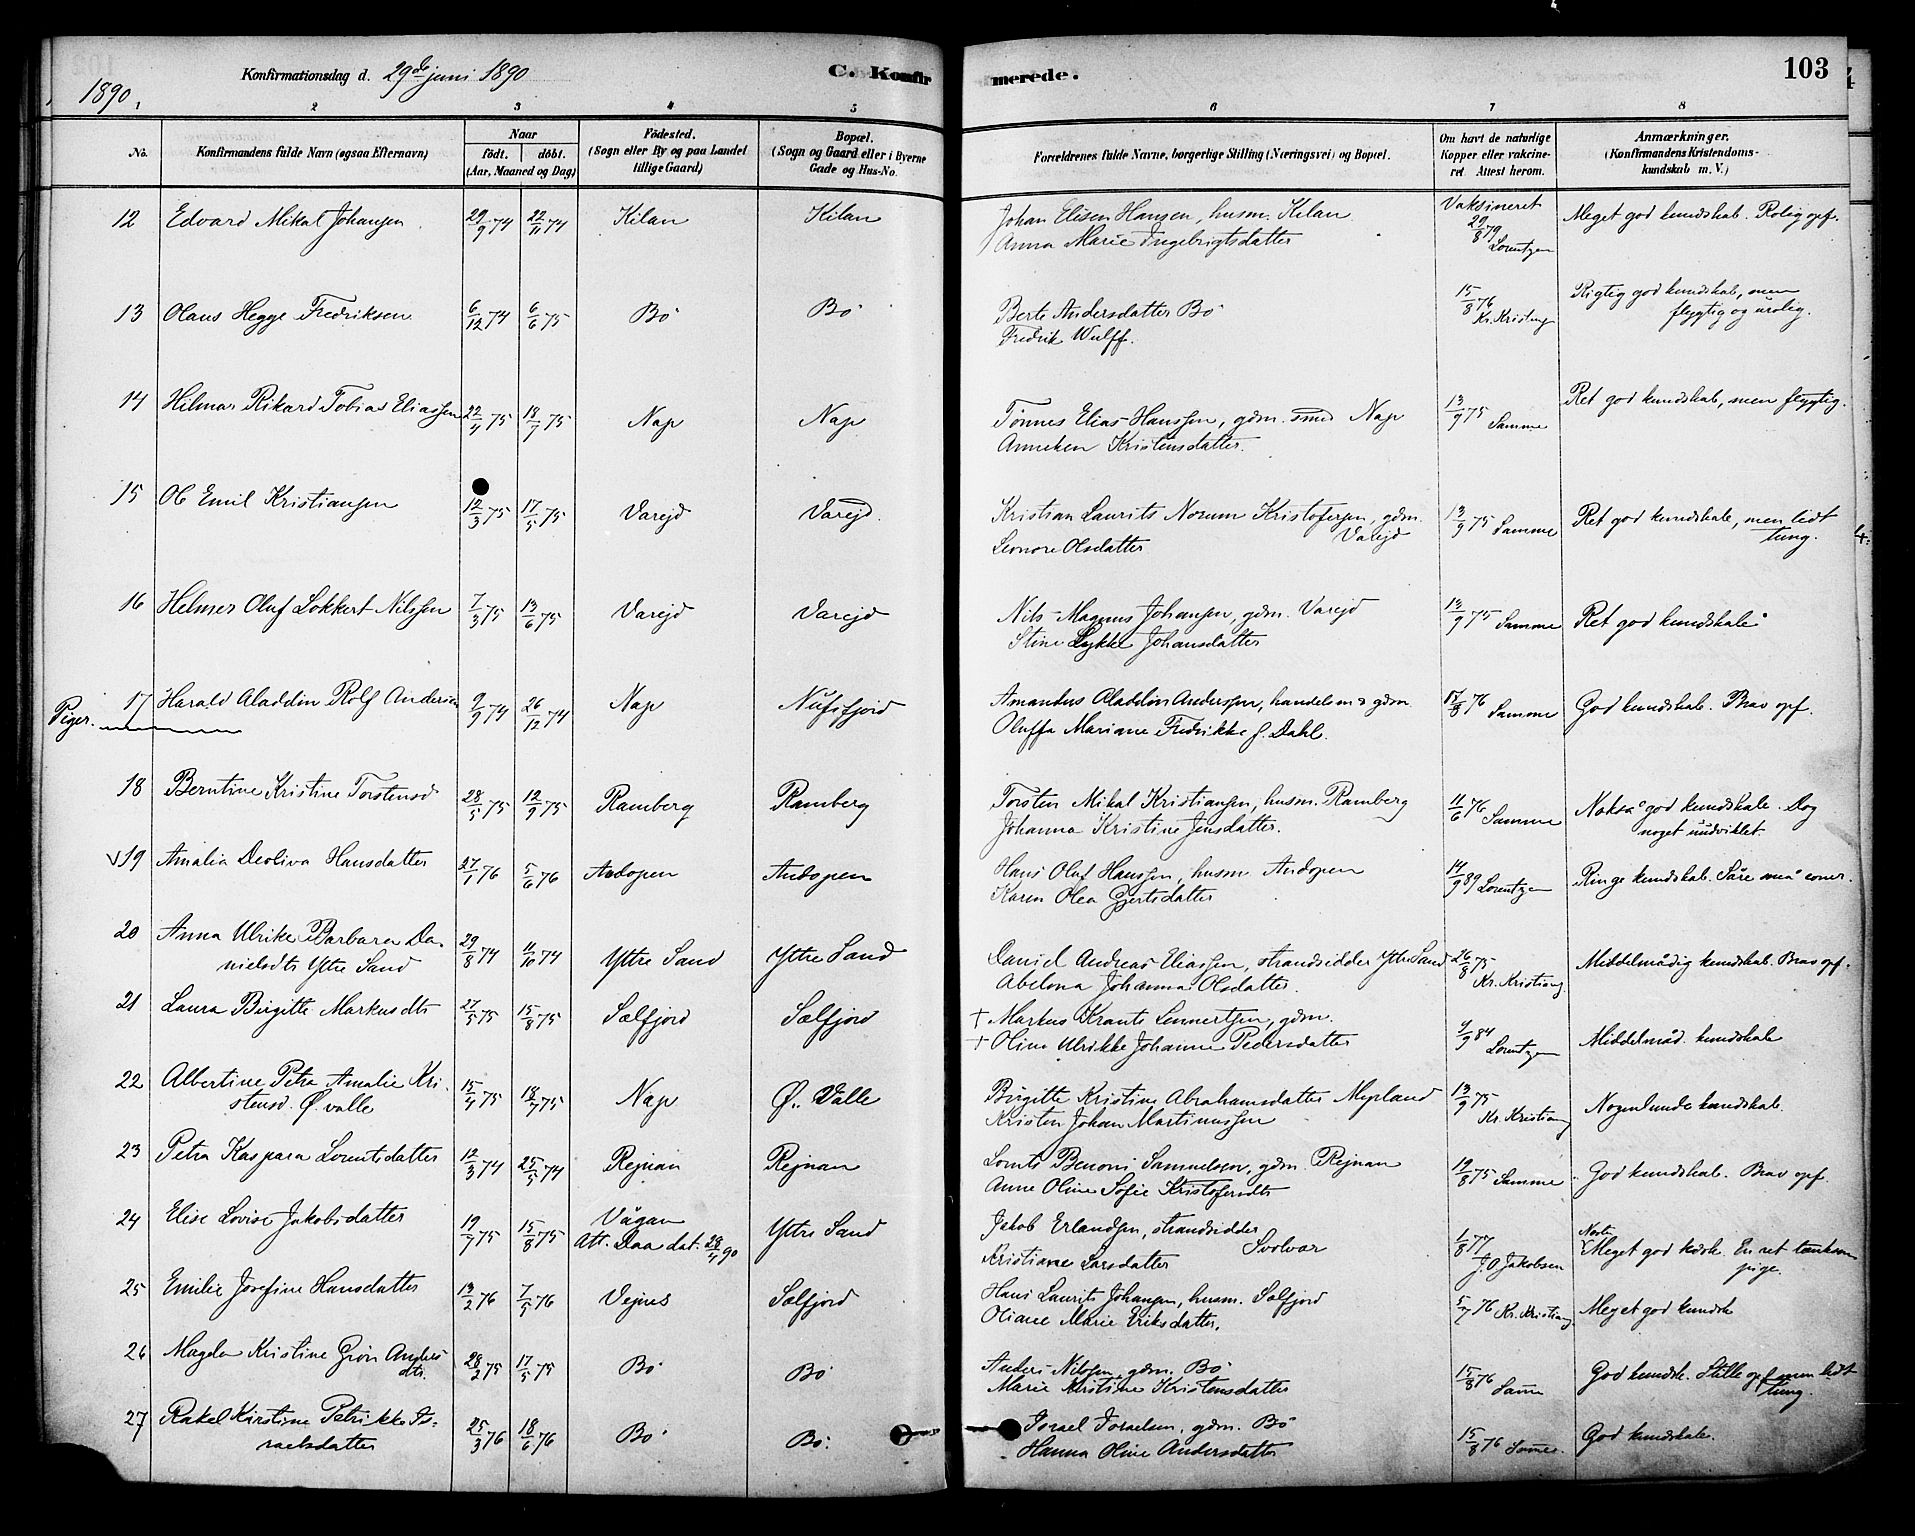 Konfirmationsdag d. 29de juni 1890
C. Konfirmerede.
103
1890.
1 2 3 4 5 6 7 8
No.
Konfirmandens fulde Navn (ogsaa Efternavn)
Naar
födt. döbt.
(Aar, Maaned og Dag)
Födested.
(Sogn eller By og paa Landet
tillige Gaard)
Bopæl.
(Sogn og Gaard eller i Byerne
Gade og Hus-No.
Forældrenes fulde Navne, borgerlige Stilling (Næringsvei) og Bopæl.
Om havt de naturlige
Kopper eller vakcine-
ret. Attest herom.
Anmærkninger.
(Konfirmandens Kristendoms-
kundskab m. V.)
12 Edvard Mikal Johansen 29/9 74 22/11 74 Kilan Kilan Johan Elisen Hansen, husm. Kilan Vaksineret Meget god kundskab. Rolig opf.
Anna Marie Ingebrigtsdatter 29/8 79 Lorentzen
13 Olaus Hegge Fredriksen 6/12 74 6/6 75 Bö Bö Berte Andersdatter Bö 15/8 76 Kr. Kristiansen Rigtig god kundskab, men
Fredrik Wulff. flygtig og urolig.
14 Hilmar Rikard Tobias Eliassen 22/4 75 18/7 75 Nap Nap Tönnes Elias Hanssen, gdm. smed Nap 13/9 75 Samme Ret god kundskab, men flygtig.
Anneken Kristensdatter.
15 Ol Emil Kristiansen 12/3 75 17/5 75 Varejd Varejd. Kristian Laurits Norum Kristofersen, gdm. 13/9 75 Samme Ret god kundskab, men lidt
Varejd tung.
Leonore Olsdatter
16 Helmer Oluf Lokkert Nilssen 7/3 75 13/6 75 Varejd Varejd Nils Magnus Johansen, gdm. Varejd 13/9 75 Samme Ret god kundskab
Stine Lykke Johansdatter
17 Harald Aladdin Rolf Andersen 9/9 74 26/12 74 Nap Nufsfjord Amandus Aladdin Anderssen, handelsm & gdm. 15/8 76 Samme God kundskab. Brav opf.
Piger. Oluffa Mariane Fredrikke f. Dahl.
18 Berntine Kristine Torstensd 28/5 75 12/9 75 Ramberg Ramberg Torsten Mikal Kristiansen, husm. Ramberg 11/6 76 Samme Nokså god kundskab. Dog
Johanna Kristine Jensdatter. noget uudviklet.
V 19 Amalia Deoliva Hansdatter 27/1 76 5/6 76 Andopen Andopen Hans Oluf Hanssen, husm Andopen 14/9 89 Lorentzen Ringe kundskab. Såre små evner.
Karen Olea Gjertsdatter
20 Anna Ulrike Barbara Da- 29/8 74 11/10 74 Ytre Sand Ytre Sand Daniel Andreas Eliassen, strandsidder Ytre Sand 26/8 75 Middelmådig kundskab. Brav opf.
nielsdtr Ytre Sand Abelona Johanna Olsdatter. Kr. Kristians.
21 Laura Birgitte Markusdtr 27/5 75 15/8 75 Sælfjord Sælfjord + Markus Krants Lennertsen, gdm. 4/9 84 Lorentzen Middelmåd. kundskab
+ Oline Ulrikke Johanne Pedersdatter
22 Albertine Petra Amalie Kri- 15/4 75 18/7 75 Nap Ø. Valle Birgitte Kristine Abrahamsdatter Myrland 13/9 75 Kr. Kristians Nogenlunde kundskab.
stensd. Ø. valle Kristen Johan Martinussen
23 Petra Kaspara Lorentsdatter 12/3 74 25/5 74 Rejnan Rejnan Lornts Benoni Samuelsen, gdm. Rejnan 19/8 75 Samme God kundskab. Brav opf.
Anne Oline Sofie Kristofersdtr
24 Elise Lovise Jakobsdatter 19/7 75 15/8 75 Vågan Ytre Sand Jakob Erlandsen, strandsidder 1/8 77 J. O. Jakobsen Meget god kdsk. En ret tænksom
Att. Daa dat. 28/4 90 Svolvær pige.
Kristiane Larsdatter
25 Emilie Josefine Hansdatter 13/2 76 7/5 76 Vejnes Sælfjord Hans Laurits Johansen, husm. Sælfjord 5/7 76 Kr. Kristians Meget god kundsk
Oliane Marie Eriksdatter.
26 Magda Kristine Grön Anders 28/2 75 17/5 75 Bö Bö Anders Nilssen, gdm. Bö 15/8 76 Samme God kundsk. Stille opf men lidt
dtr. Marie Kristine Kristensdatter tung.
27 Rakel Kirstine Petrikke Is- 25/3 76 18/6 76 Bö Bö. Israel Israelsen, gdm. Bö 15/8 76 Samme. God kundskab.
raelsdatter Hanna Oline Andersdatter